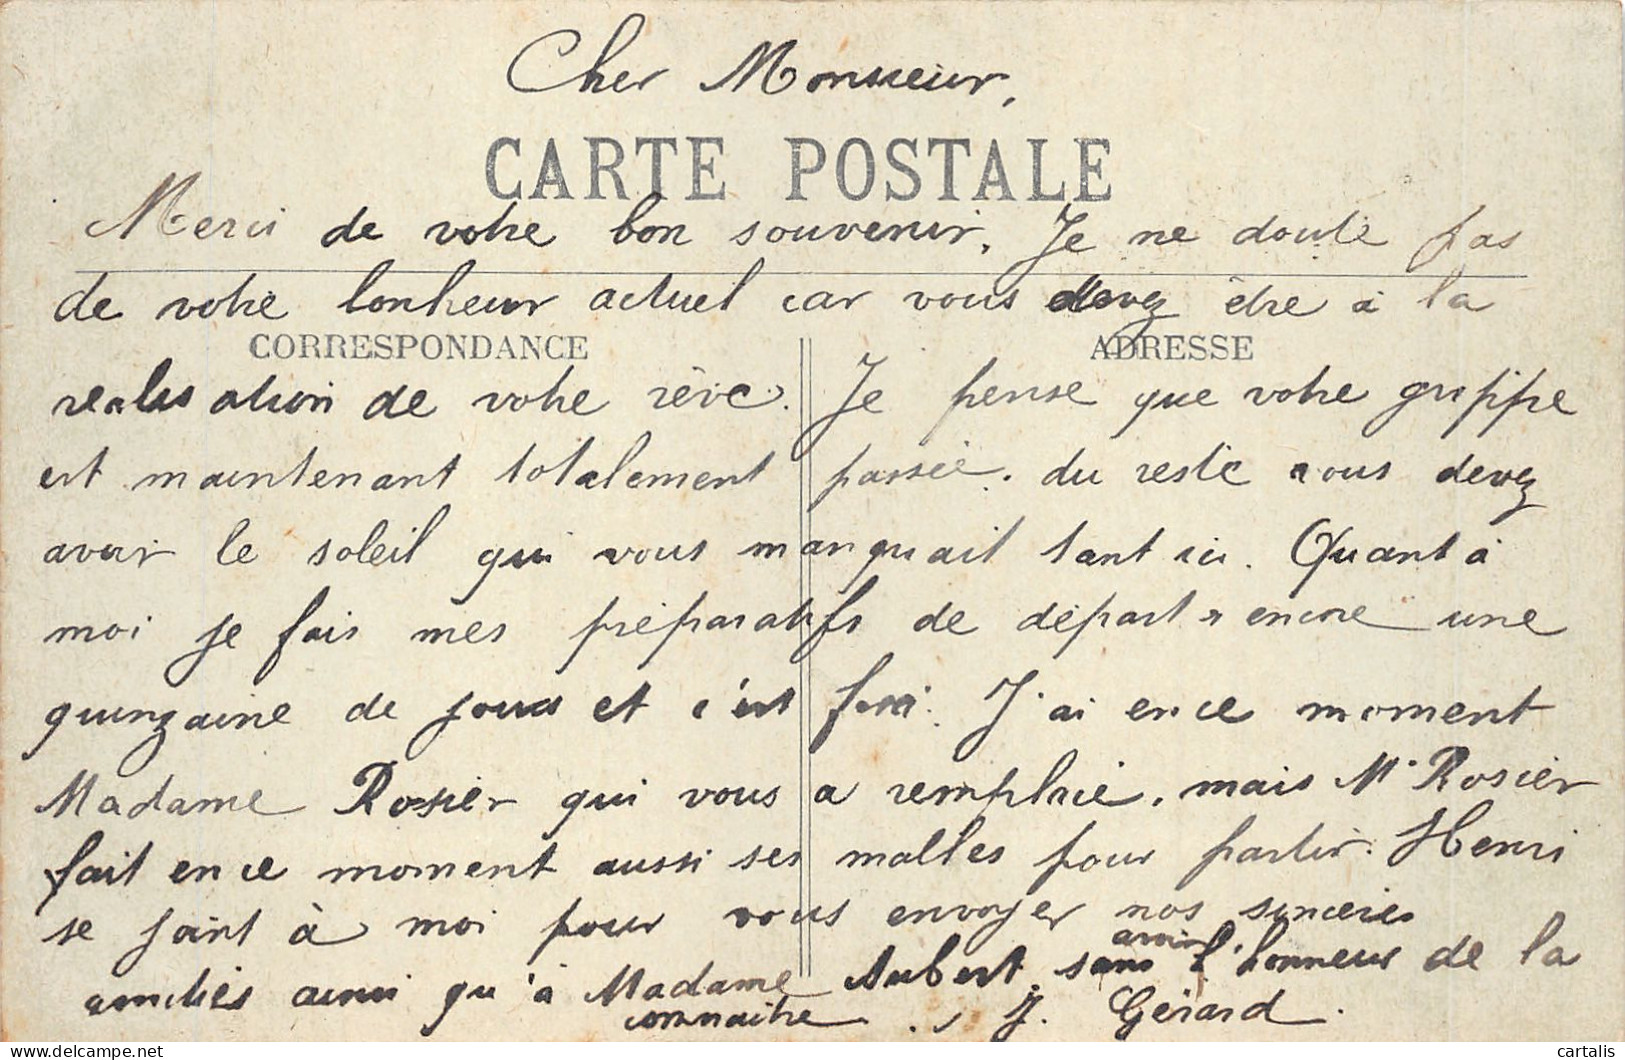 Cher Monsieur,
CARTE POSTALE
Merci de votre bon souvenir. Je ne doute pas
de votre bonheur actuel car vous devez être à la
CORRESPONDANCE ADRESSE
realisation de votre rêve. Je pense que votre grippe
est maintenant totalement passée. du reste vous devez
avoir le soleil qui vous manquait tant ici. Quant à
moi je fais mes préparatifs de départ encore une
quinzaine de jours et c'est fini. J'ai en ce moment
Madame Rosier qui vous a remplacé, mais Mr Rosier
fait en ce moment aussi ses malles pour partir. Henri
se joint à moi pour vous envoyer nos sincères
amitiés ainsi qu'à Madame Aubert sans avoir l'honneur de la
connaitre. J. Gérard.
cartalis